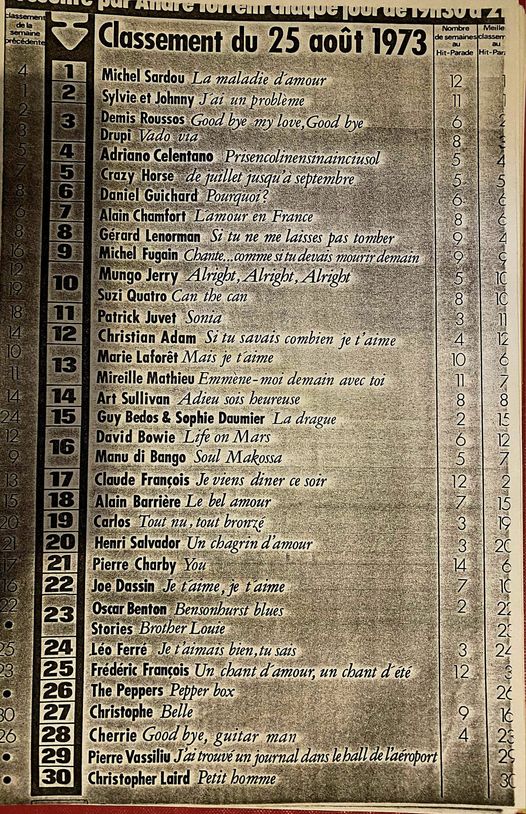 par André Torrent chaque jour de 19h30 à 21
classement de la semaine précédente
Classement du 25 août 1973
Nombre de semaines au Hit-Parade
au Hit-Par
1 Michel Sardou La maladie d'amour 12
2 Sylvie et Johnny J'ai un problème 11
3 Demis Roussos Good bye my love, Good bye 6
Drupi Vado via 8
4 Adriano Celentano Prisencolinensinainciusol 5
5 Crazy Horse de juillet jusqu'a septembre 5
6 Daniel Guichard Pourquoi? 6
7 Alain Chamfort L'amour en France 8
8 Gérard Lenorman Si tu ne me laisses pas tomber 9
9 Michel Fugain Chante...comme si tu devais mourir demain 9
10 Mungo Jerry Alright, Alright, Alright 5
Suzi Quatro Can the can 8
11 Patrick Juvet Sonia 3
12 Christian Adam Si tu savais combien je t'aime 4
13 Marie Laforêt Mais je t'aime 10
Mireille Mathieu Emmène-moi demain avec toi 11
14 Art Sullivan Adieu sois heureuse 8
15 Guy Bedos & Sophie Daumier La drague 2
16 David Bowie Life on Mars 6
Manu di Bango Soul Makossa 5
17 Claude François Je viens diner ce soir 12
18 Alain Barrière Le bel amour 7
19 Carlos Tout nu, tout bronzé 3
20 Henri Salvador Un chagrin d'amour 3
21 Pierre Charby You 14
22 Joe Dassin Je t'aime, je t'aime 7
23 Oscar Benton Bensonhurst blues 2
Stories Brother Louie
24 Léo Ferré Je t'aimais bien, tu sais 3
25 Frédéric François Un chant d'amour, un chant d'été 12
26 The Peppers Pepper box
27 Christophe Belle 9
28 Cherrie Good bye, guitar man 4
29 Pierre Vassiliu J'ai trouvé un journal dans le hall de l'aéroport
30 Christopher Laird Petit homme